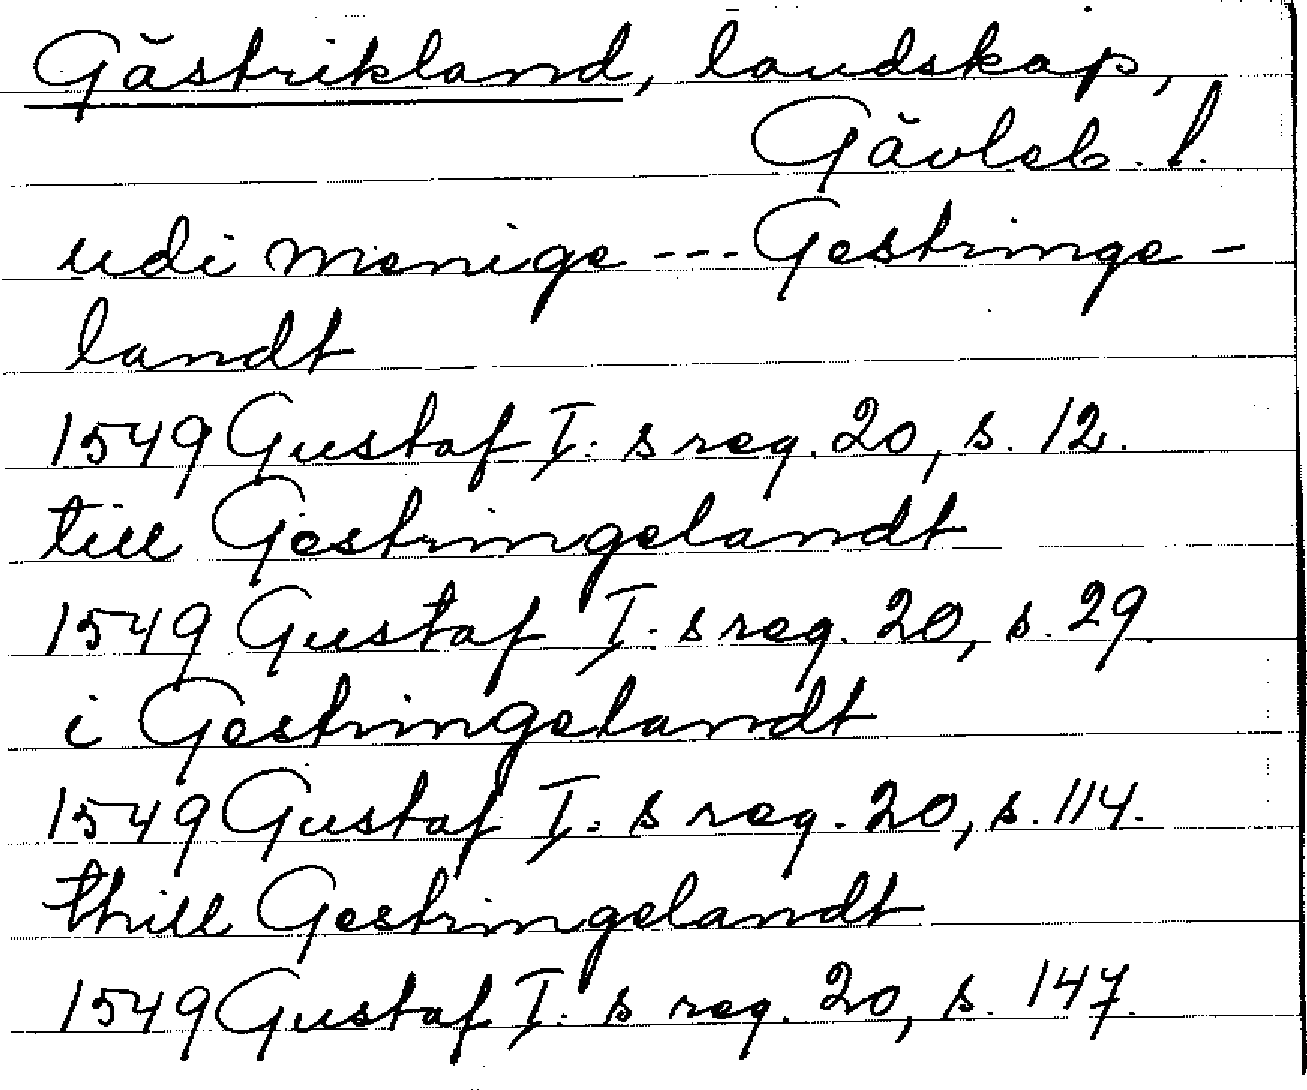 Gästrikland, landskap,
Gävleb. l.
udi menige --- Gestringe-
landt
1549 Gustaf I: s reg. 20, s. 12.
till Gestringelandt
1549 Gustaf I: s reg. 20, s. 29.
i Gestringelandt
1549 Gustaf I: s reg. 20, s. 114.
thill Gestringelandt
1549 Gustaf I: s reg. 20, s. 147.